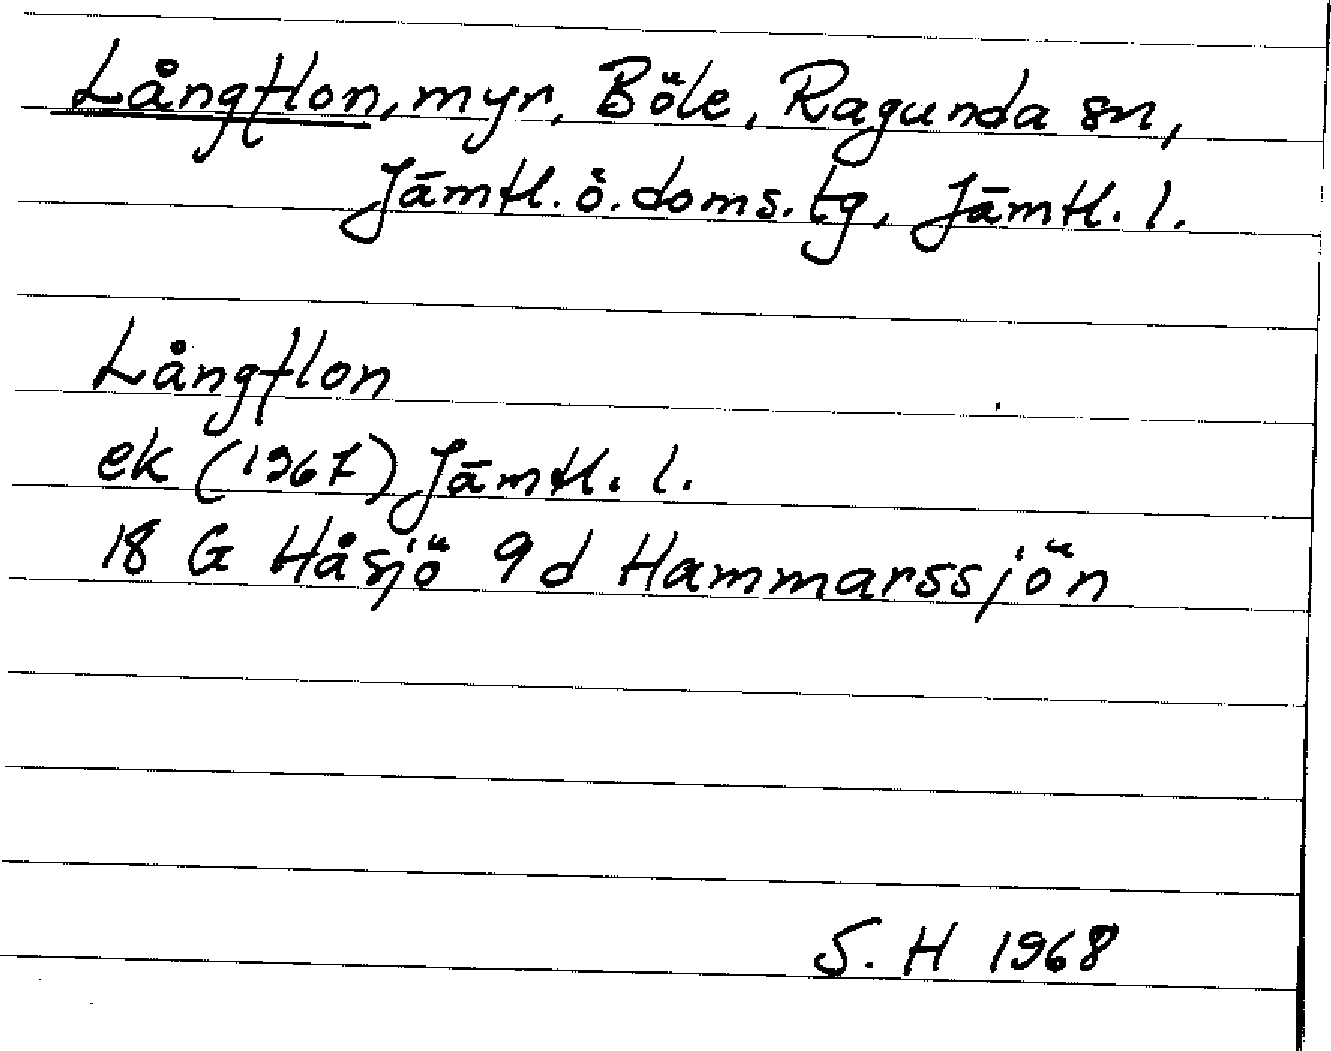 Långflon, myr, Böle, Ragunda sn,
Jämtl. ö. doms. tg, Jämtl. l.
Långflon
ek (1967) Jämtl. l.
18 G Håsjö 9d Hammarssjön
S. H 1968